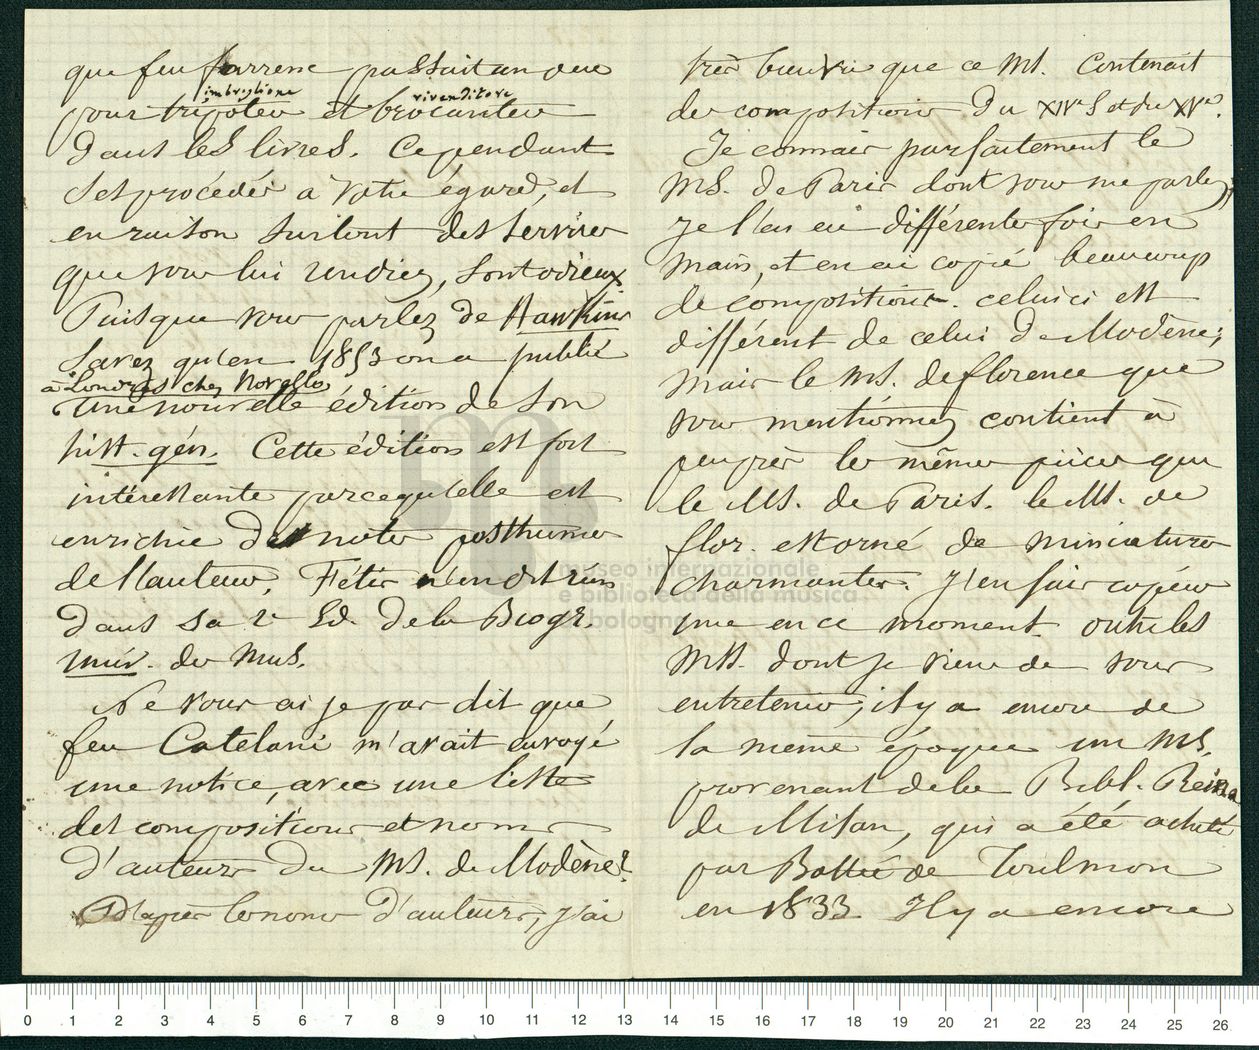 que feu Farrenc passait un peu
imbriglione rivenditore
pour tripoter et brocanter
dans les livres. Cependant
ses procédés à votre égard, et
en raison surtout des services
que vous lui rendiez, sont odieux
Puisque vous parlez de Hawkins
savez qu'en 1853 on a publié
à Londres chez Novello
une nouvelle édition de son
hist. gén. Cette édition est fort
intéressante parcequ'elle est
enrichie des notes posthumes
de l'auteur, Fétis n'en dit rien
dans sa 2e Ed. de la Biogr.
univ. des Mus.
Ne vous ai je pas dit que
feu Catelani m'avait envoyé
une notice, avec une liste
des compositions et noms
d'auteurs du MS. de Modène?
D'après les noms d'auteurs, j'ai
très bien vu que ce MS. contenait
des compositions du XIVe S et du XVe.
Je connais parfaitement le
MS. de Paris dont vous me parlez,
je l'ai eu différentes fois en
mains, et en ai copié beaucoup
de compositions. celui ci est
différent de celui de Modène;
mais le MS. de florence que
vous mentionnez contient à
peu près les mêmes pièces que
le MS. de Paris. le MS. de
flor. est orné de miniatures
charmantes. J'en fais copier
une en ce moment. outre les
MSS. dont je viens de vous
entretenir, il y a encore de
la même époque un MS.
provenant de la Bibl. Reina
de Milan, qui a été acheté
par Bottée de Toulmon
en 1833 Il y a encore
museo internazionale
e biblioteca della musica
bologna
0 1 2 3 4 5 6 7 8 9 10 11 12 13 14 15 16 17 18 19 20 21 22 23 24 25 26